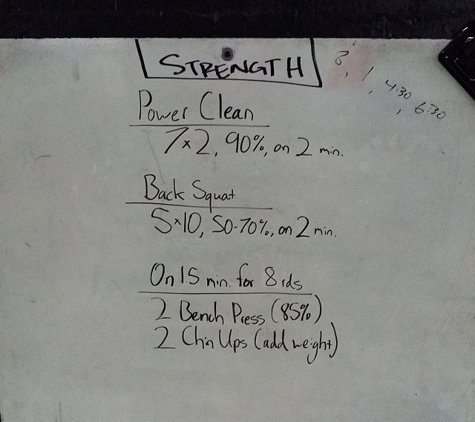 STRENGTH
1, 4:30, 6:30
Power Clean
7x2, 90%, on 2 min.
Back Squat
5x10, 50-70%, on 2 min.
On 15 min. for 8 rds
2 Bench Press (85%)
2 Chin Ups (add weight)